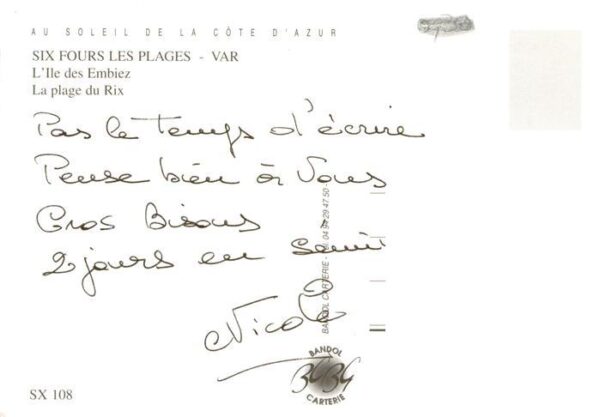 AU SOLEIL DE LA CÔTE D'AZUR
SIX FOURS LES PLAGES - VAR
L'Ile des Embiez
La plage du Rix
Pas le temps d'écrire
Pense bien à Vous
Gros Bisous
2 jours en
Nicole
BANDOL CARTERIE - Tél. 04 94 29 47 50 -
BANDOL
CARTERIE
SX 108